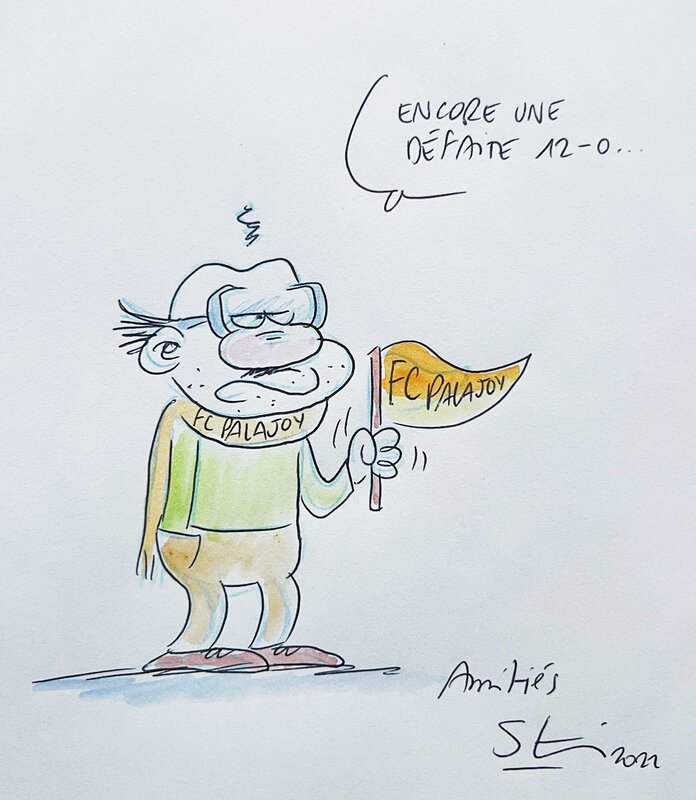 ENCORE UNE
DÉFAITE 12-0...
FC PALAJOY
FC PALAJOY
Amitiés
2022